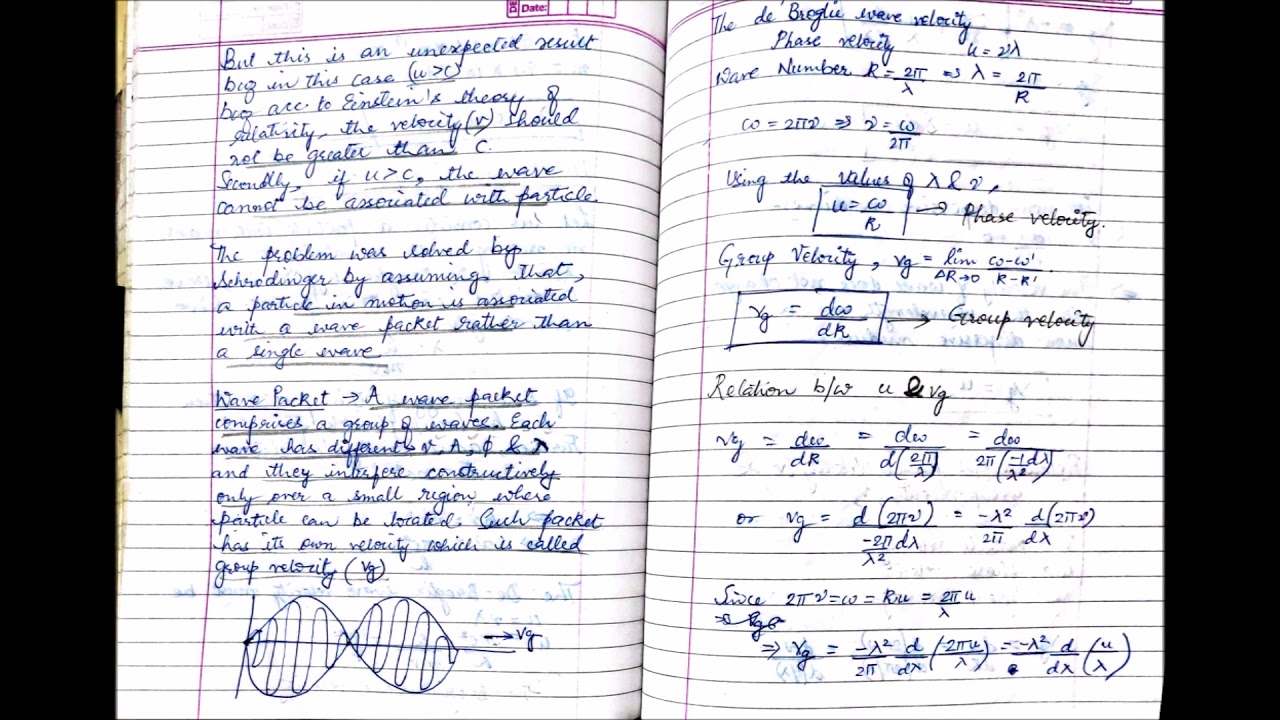 Date:
But this is an unexpected result
bcz in this case (u>c)
bcz acc. to Einstein's theory of
relativity, the velocity (v) should
not be greater than C.
Secondly, if u>c, the wave
cannot be associated with particle.
The problem was solved by
Schrodinger by assuming that,
a particle in motion is associated
with a wave packet rather than
a single wave.
Wave Packet → A wave packet
comprises a group of waves. Each
wave has different v, A, ϕ & λ
and they interfere constructively
only over a small region, where
particle can be located. Such packet
has its own velocity which is called
group velocity (vg)
→ vg
The de Broglie wave velocity
Phase velocity u = νλ
Wave Number K = 2π/λ ⇒ λ = 2π/K
ω = 2πν ⇒ ν = ω/2π
Using the values of λ & ν,
u = ω/K → Phase velocity.
Group Velocity, vg = lim ΔK→0 ω-ω'/K-K'
vg = dω/dK → Group velocity
Relation b/w u & vg
vg = dω/dK = dω/d(2π/λ) = dω/2π(-1/λ² dλ)
or vg = d(2πν)/-2π/λ² dλ = -λ²/2π d(2πν)/dλ
Since 2πν = ω = Ku = 2π/λ u
⇒ vg = -λ²/2π d/dλ (2πu/λ) = -λ² d/dλ (u/λ)